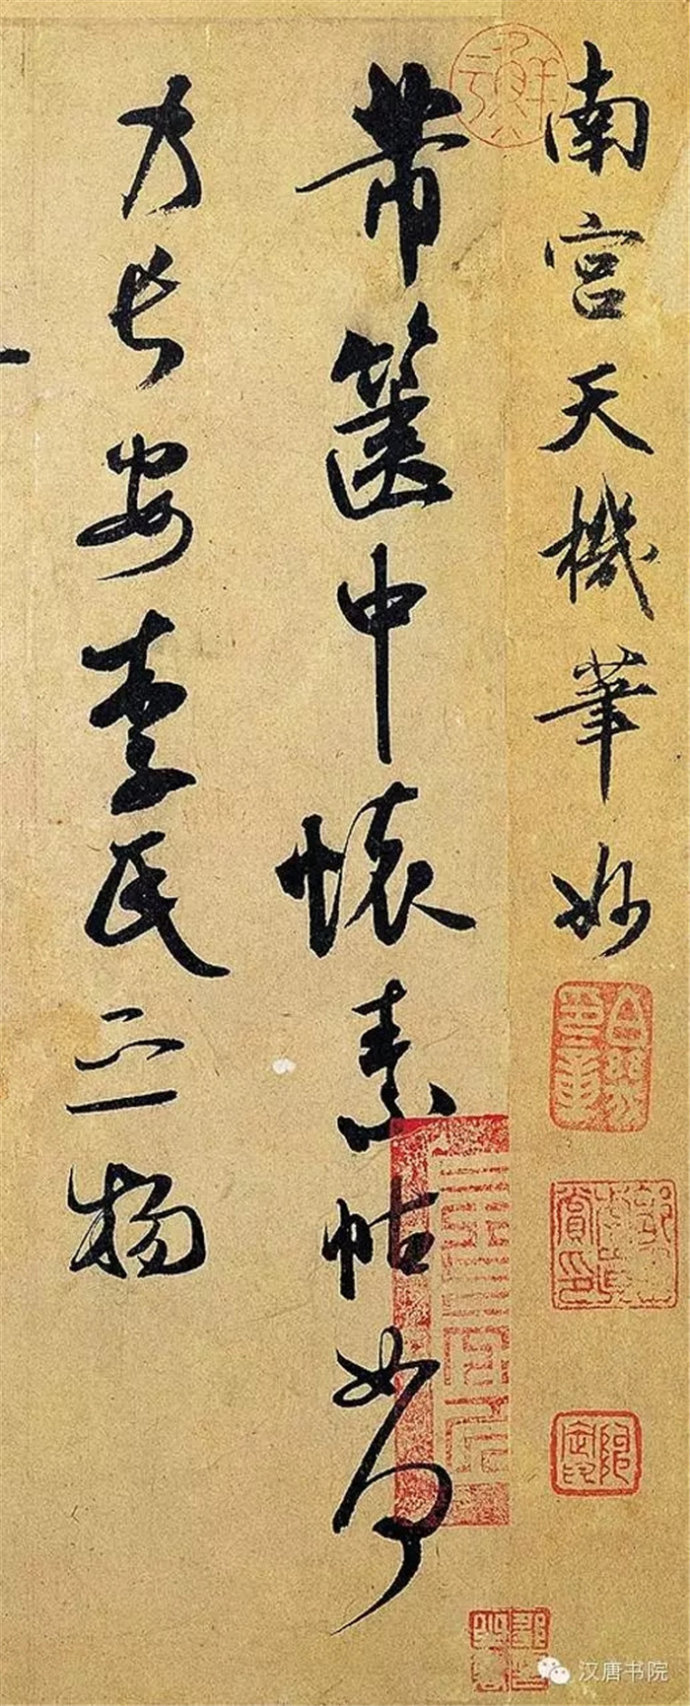 南宫天機筆妙
芾篋中懷素帖如何
乃長安李氏之物
汉唐书院